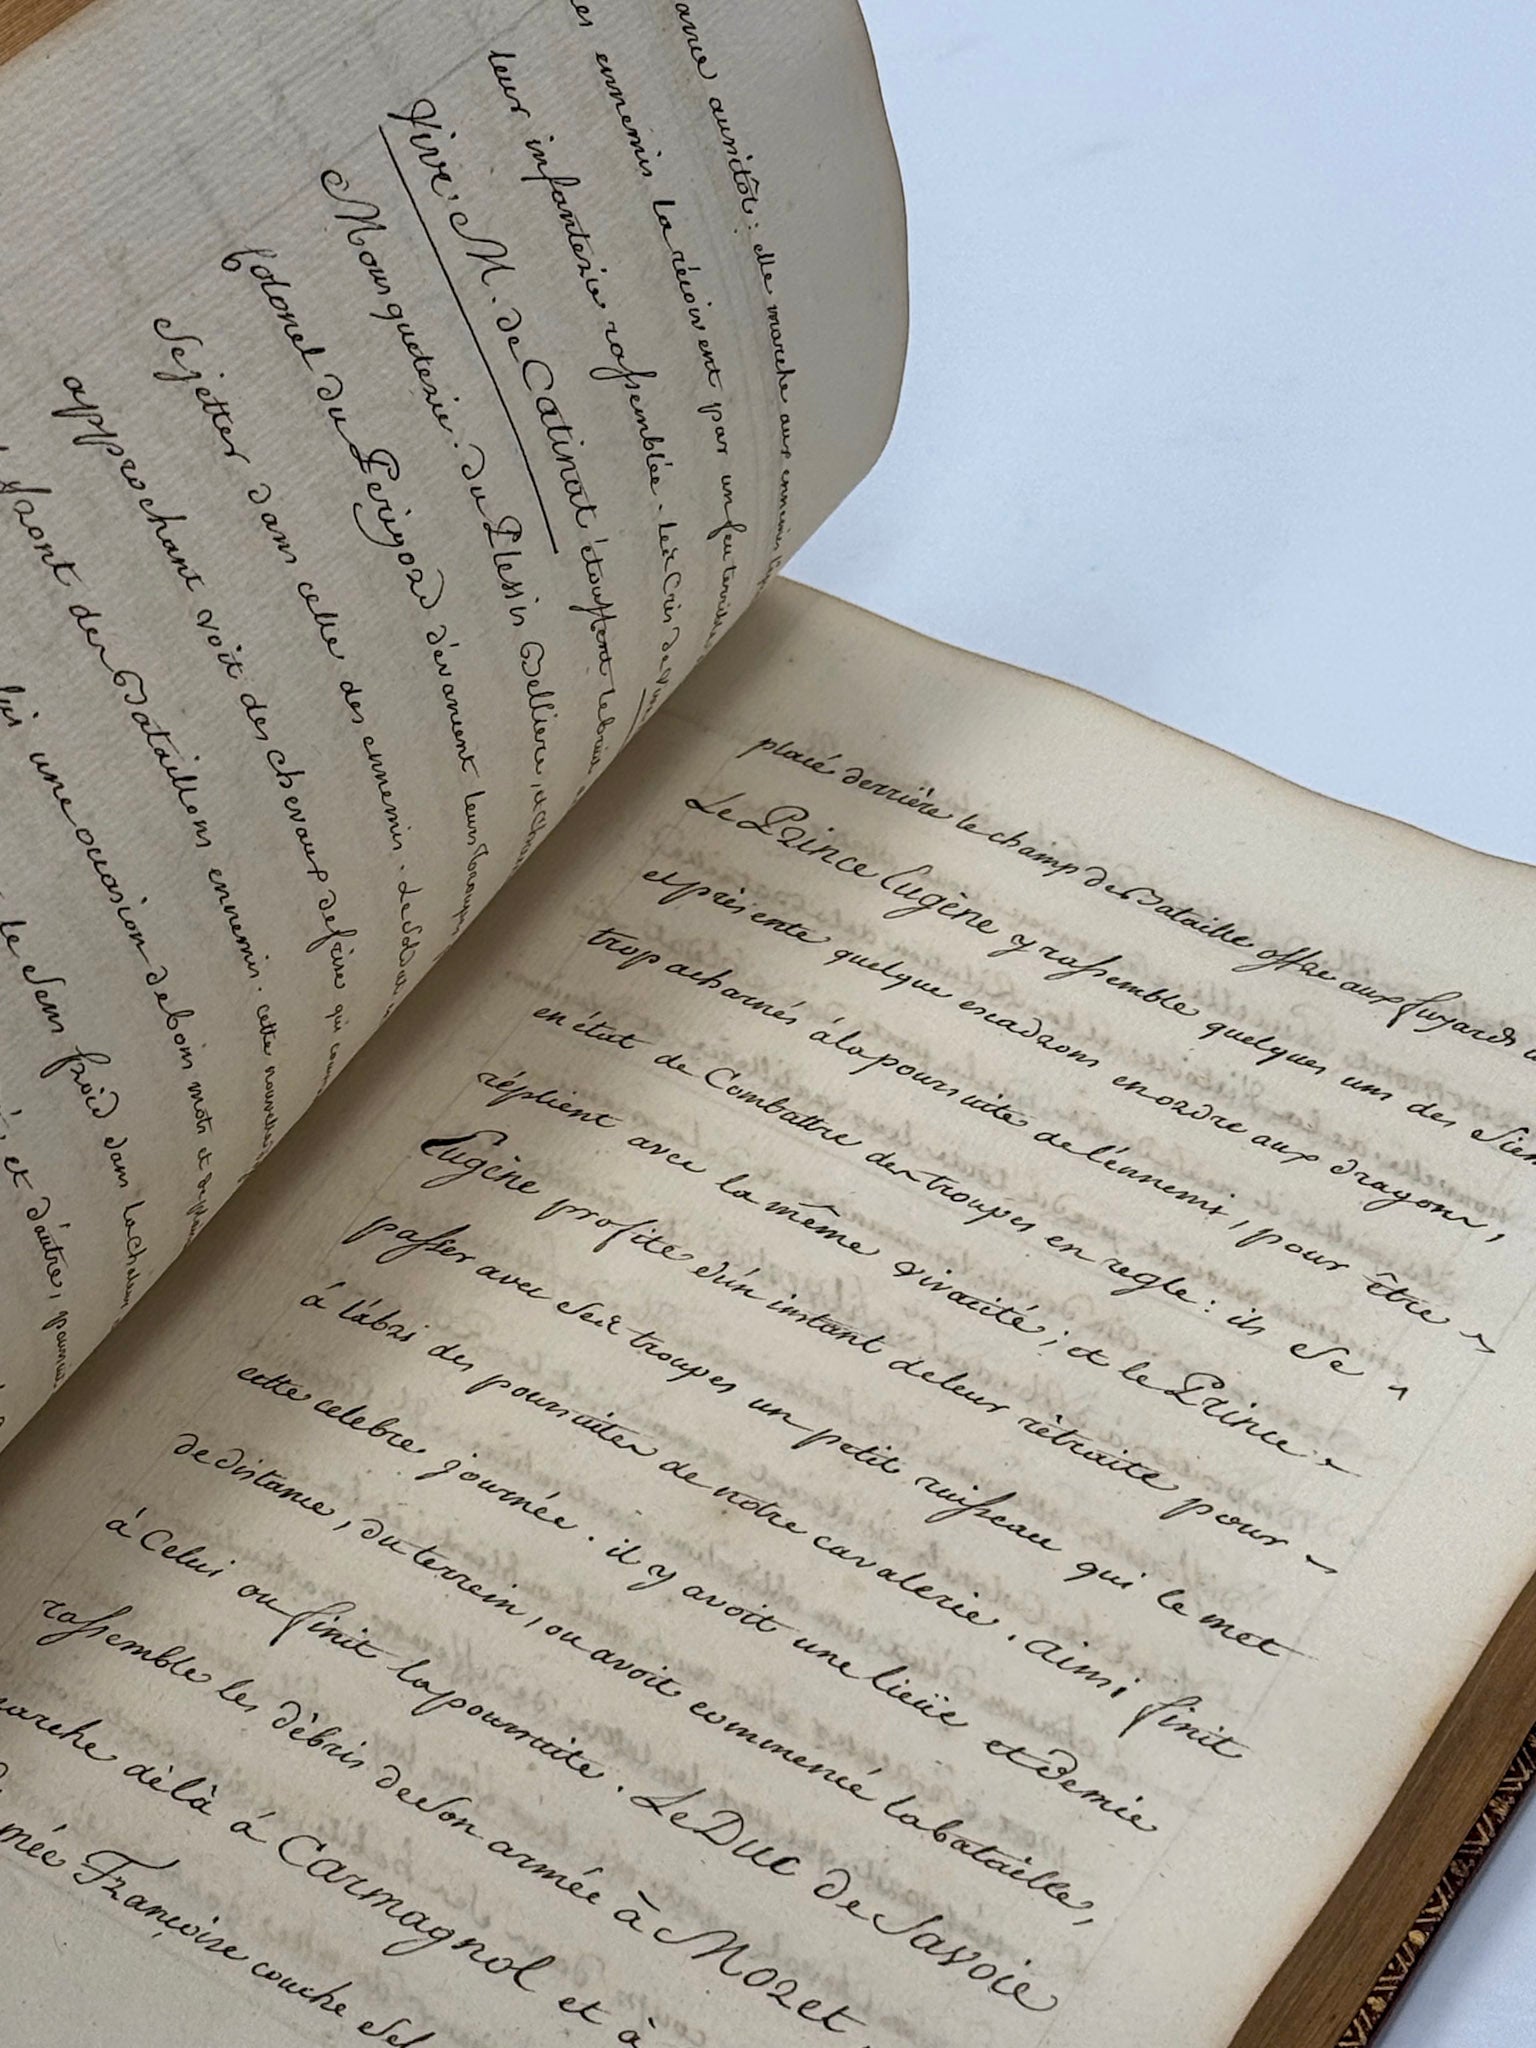 aussitôt: elle marche aux ennemis
ennemis la réçoivent par un feu terrible
leur infanterie rassemblée. les Cris de Vive
Vive, M. de Catinat étouffent le bruit
Mousqueterie. du Plessis Belliere, et
Colonel du Perigord dévancent leurs troupes
se jetter dans celle des ennemis. Le Soldat
approchant voit des chevaux de frise qui
des Bataillons ennemis. cette nouvelle
une ocasion de bons mots et de
le Sens froid dans la chaleur
et d'autre,
placé derrière le champ de Bataille offre aux fuyards
Le Prince Eugène y rassemble quelques uns des Siens
et présente quelque escadrons en ordre aux dragons,
trop acharnés à la poursuite de l'énnemi, pour être ~
en état de Combattre des troupes en regle: ils se ~
réplient avec la même vivacité; et le Prince ~
Eugène profite d'un instant de leur rètraite pour ~
passer avec ses troupes un petit ruisseau qui le met
à l'abri des poursuites de notre cavalerie. ainsi finit
cette celebre journée. il y avoit une lieüe et demie
de distance, du terrein, ou avoit commencé la bataille,
à Celui ou finit la poursuite. Le Duc de Savoie
rassemble les dèbris de son armée à Mozet,
marche dèlà à Carmagnol et à
Françoise couche